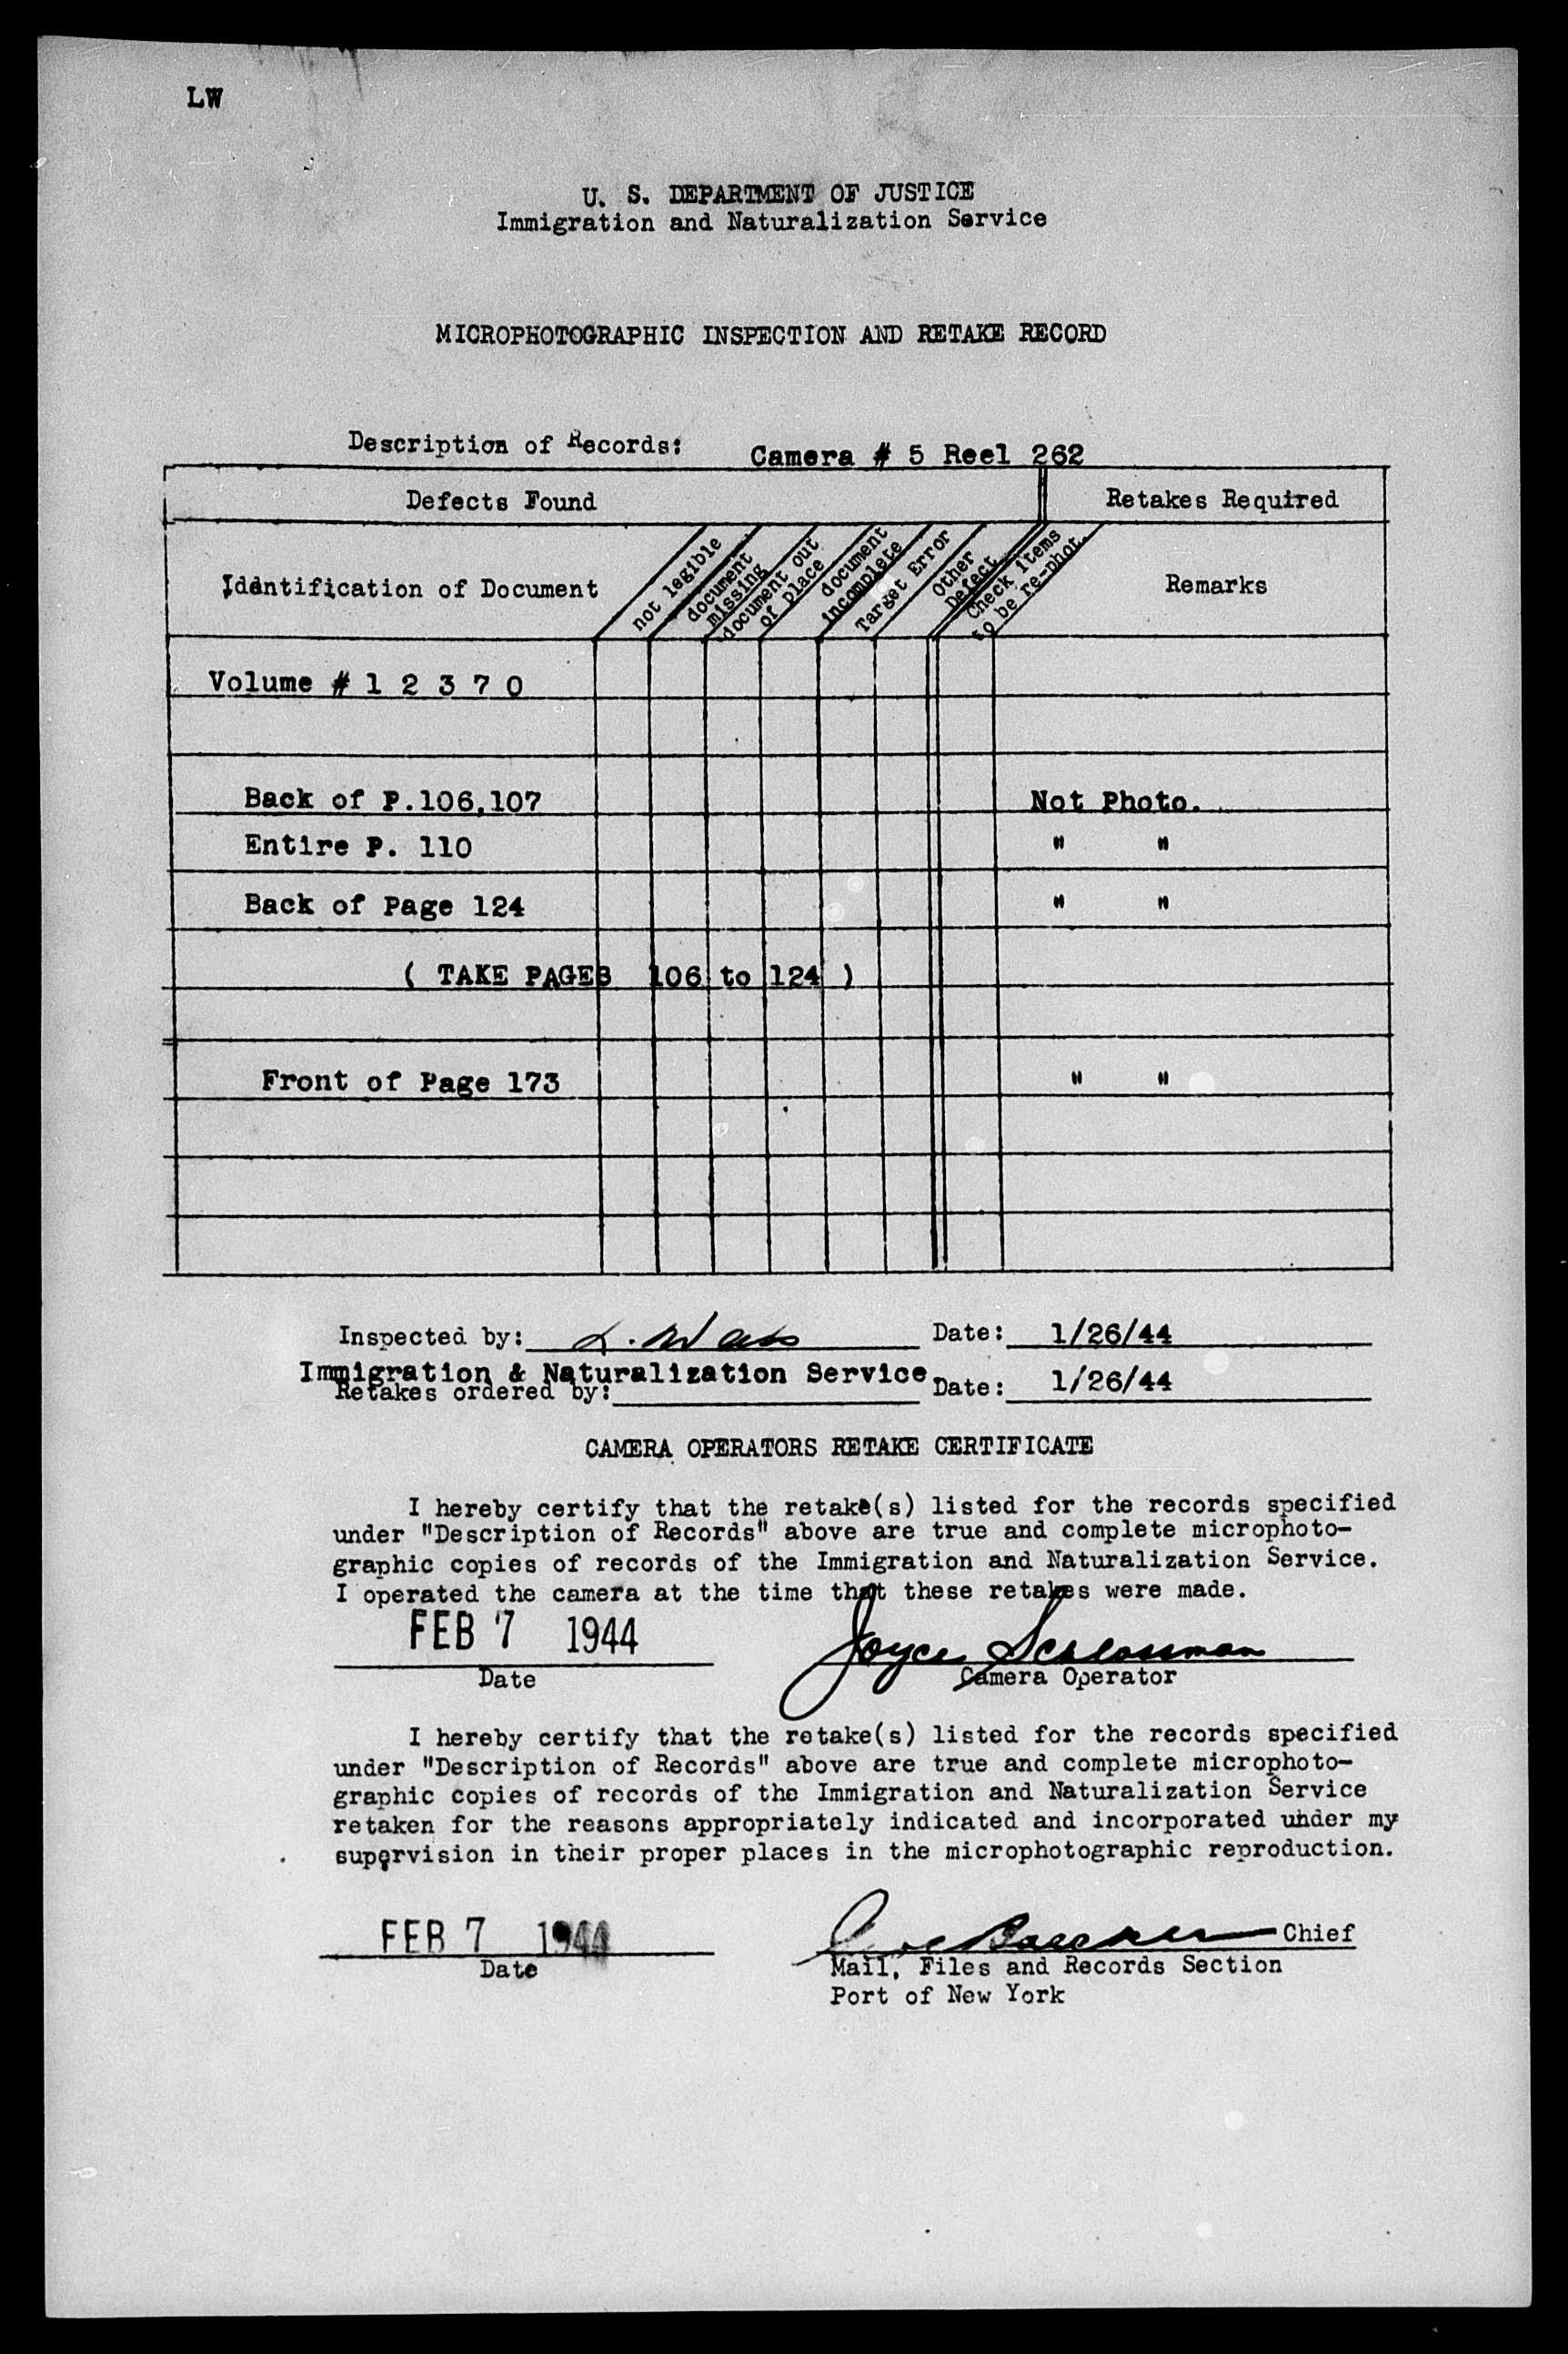 LW
U. S. DEPARTMENT OF JUSTICE
Immigration and Naturalization Service
MICROPHOTOGRAPHIC INSPECTION AND RETAKE RECORD
Description of Records: Camera # 5 Reel 262
Defects Found Retakes Required
Identification of Document
not legible
document missing
document out of place
document incomplete
Target Error
Other Defect
Check items to be re-phot.
Remarks
Volume # 1 2 3 7 0
Back of P.106,107 Not Photo.
Entire P. 110 " "
Back of Page 124 " "
( TAKE PAGES 106 to 124 )
Front of Page 173 " "
Inspected by: L. Date: 1/26/44
Immigration & Naturalization Service
Retakes ordered by: Date: 1/26/44
CAMERA OPERATORS RETAKE CERTIFICATE
I hereby certify that the retake(s) listed for the records specified
under "Description of Records" above are true and complete microphoto-
graphic copies of records of the Immigration and Naturalization Service.
I operated the camera at the time that these retakes were made.
FEB 7 1944 Joyce Schlossman
Date Camera Operator
I hereby certify that the retake(s) listed for the records specified
under "Description of Records" above are true and complete microphoto-
graphic copies of records of the Immigration and Naturalization Service
retaken for the reasons appropriately indicated and incorporated under my
supervision in their proper places in the microphotographic reproduction.
FEB 7 1944 Chief
Date Mail, Files and Records Section
Port of New York